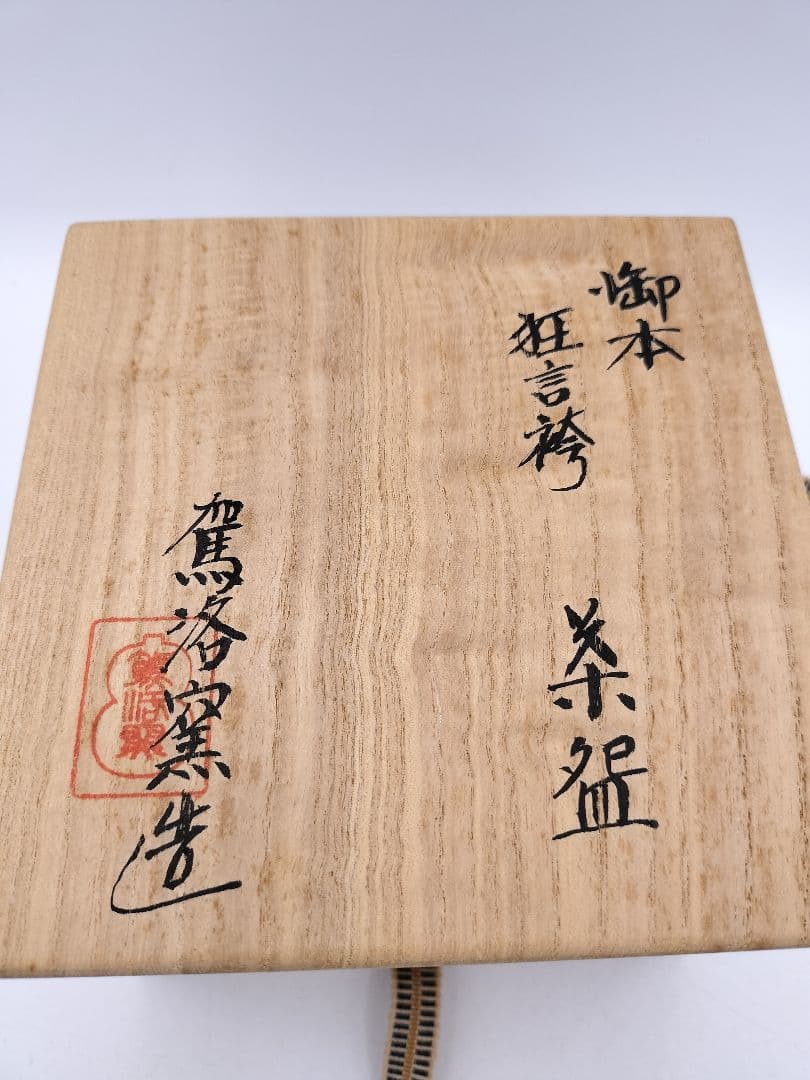 御本
狂言袴
茶盌
駕洛窯造